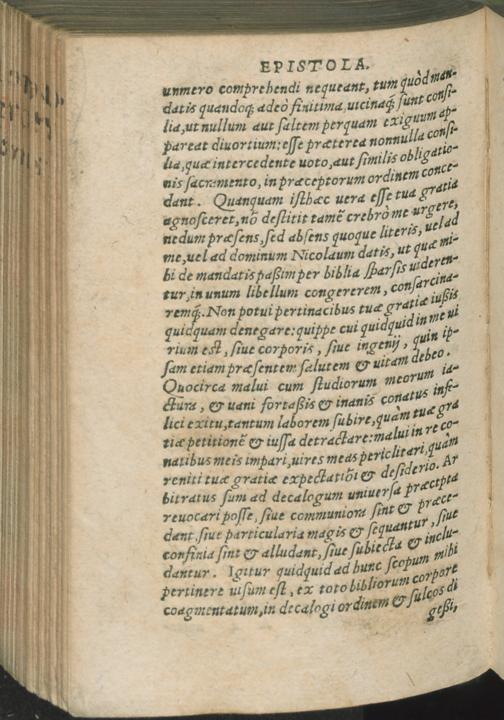 EPISTOLA.
unmero comprehendi nequeant, tum quòd man-
datis quandoq; adeò finitima, uicinaq́; sunt consi-
lia, ut nullum aut saltem perquam exiguum ap-
pareat diuortium: esse præterea nonnulla consi-
lia, quæ intercedente uoto, aut similis obligatio-
nis sacramento, in præceptorum ordinem conce-
dant. Quanquam isthæc uera esse tua gratia
agnosceret, nō destitit tamē crebrò me urgere,
nedum præsens, sed absens quoque literis, uel ad
me, uel ad dominum Nicolaum datis, ut quæ mi-
hi de mandatis paßim per biblia sparsis uideren-
tur, in unum libellum congererem, consarcina-
remq́;. Non potui pertinacibus tuæ gratiæ iußis
quidquam denegare: quippe cui quidquid in me ui
rium est, siue corporis, siue ingenij, quin ip-
sam etiam præsentem salutem & uitam debeo.
Quocirca malui cum studiorum meorum ia-
ctura, & uani fortaßis & inanis conatus infe-
lici exitu, tantum laborem subire, quàm tuæ gra
tiæ petitionē & iussa detractare: malui in re co-
natibus meis impari, uires meas periclitari, quàm
reniti tuæ gratiæ expectatiōi & desiderio. Ar
bitratus sum ad decalogum uniuersa præcepta
reuocari posse, siue communiora sint & præce-
dant, siue particularia magis & sequantur, siue
confinia sint & alludant, siue subiecta & inclu-
dantur. Igitur quidquid ad hunc scopum mihi
pertinere uisum est, ex toto bibliorum corpore
coagmentatum, in decalogi ordinem & sulcos di
geßi,